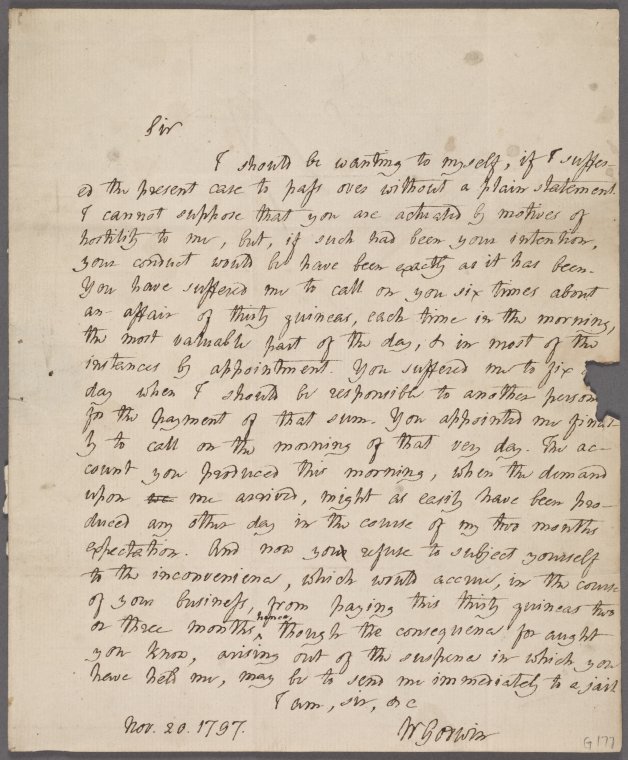 Sir
I should be wanting to myself, if I suffer-
ed the present case to pass over without a plain statement.
I cannot suppose that you are actuated by motives of
hostility to me, but, if such had been your intention,
your conduct would be have been exactly as it has been.
You have suffered me to call on you six times about
an affair of thirty guineas, each time in the morning,
the most valuable part of the day, & in most of the
instances by appointment. You suffered me to fix
day when I should be responsible to another person
for the payment of that sum. You appointed me final-
ly to call on the morning of that very day. The ac-
count you produced this morning, when the demand
upon me arrived, might as easily have been pro-
duced any other day in the course of my two months
expectation. And now you refuse to subject yourself
to the inconvenience, which would accrue, in the course
of your business, from paying this thirty guineas two
or three months hence, though the consequence for aught
you know, arising out of the suspense in which you
have held me, may be to send me immediately to a jail.
I am, sir, &c
Nov. 20. 1797. W Godwin
G 177